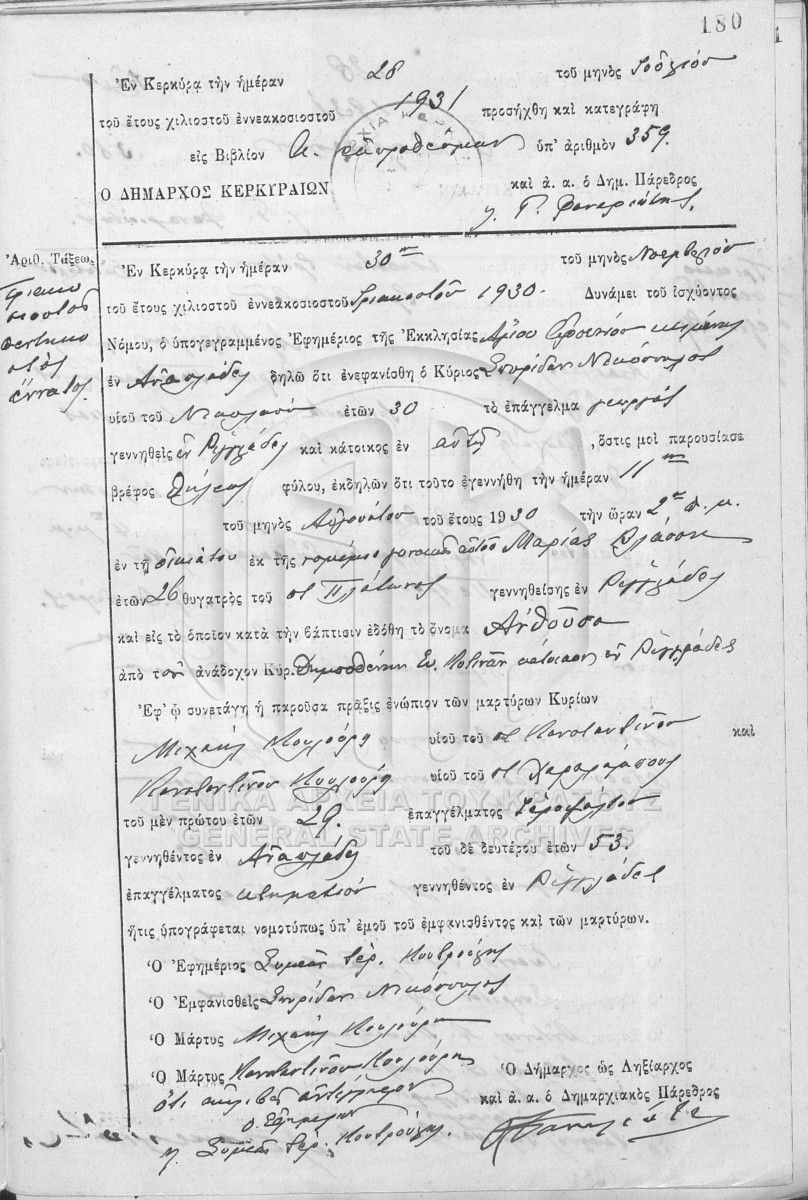 180
Ἐν Κερκύρᾳ τὴν ἡμέραν 28 τοῦ μηνὸς Ἰουλίου
τοῦ ἔτους χιλιοστοῦ ἐννεακοσιοστοῦ 1931 προσήχθη καὶ κατεγράφη
εἰς Βιβλίον ὑπ' ἀριθμὸν 359.
Ο ΔΗΜΑΡΧΟΣ ΚΕΡΚΥΡΑΙΩΝ καὶ ἀ. α. ὁ Δημ. Πάρεδρος
Ἀριθ. Τάξεως
τριακο
σιοστὸς
πεντηκο
στὸς
ἔννατος
Ἐν Κερκύρᾳ τὴν ἡμέραν 30ην τοῦ μηνὸς Νοεμβρίου
τοῦ ἔτους χιλιοστοῦ ἐννεακοσιοστοῦ τριακοστοῦ 1930. Δυνάμει τοῦ ἰσχύοντος
Νόμου, ὁ ὑπογεγραμμένος Ἐφημέριος τῆς Ἐκκλησίας Ἁγίου κειμένης
ἐν Ἀναπλάδες δηλῶ ὅτι ἐνεφανίσθη ὁ Κύριος Σπυρίδων Νικόπουλος
υἱοῦ τοῦ Νικολάου ἐτῶν 30 τὸ ἐπάγγελμα γεωργὸς
γεννηθεὶς ἐν Ριγγλάδες καὶ κάτοικος ἐν αὐτῇ, ὅστις μοὶ παρουσίασε
βρέφος θήλεος φύλου, ἐκδηλῶν ὅτι τοῦτο ἐγεννήθη τὴν ἡμέραν 11ην
τοῦ μηνὸς Αὐγούστου τοῦ ἔτους 1930 τὴν ὥραν 2αν π. μ.
ἐν τῇ οἰκίᾳ του ἐκ τῆς νομίμου γυναικὸς αὐτοῦ Μαρίας Βλάσση
ἐτῶν 26 θυγατρὸς τοῦ Πλάτωνος γεννηθείσης ἐν Ριγγλάδες
καὶ εἰς τὸ ὁποῖον κατὰ τὴν βάπτισιν ἐδόθη τὸ ὄνομα Ἀνθοῦσα
ἀπὸ τὸν ἀνάδοχον Κύρ. Δημοσθένην κάτοικον ἐν Ριγγλάδες
Ἐφ' ᾧ συνετάγη ἡ παροῦσα πρᾶξις ἐνώπιον τῶν μαρτύρων Κυρίων
Μιχαὴλ Κουλούρη υἱοῦ τοῦ Κωνσταντίνου καὶ
Κωνσταντίνου Κουλούρη υἱοῦ τοῦ Χαραλάμπους
ΓΕΝΙΚΑ ΑΡΧΕΙΑ ΤΟΥ ΚΡΑΤΟΥΣ
GENERAL STATE ARCHIVES
τοῦ μὲν πρώτου ἐτῶν 29. ἐπαγγέλματος
γεννηθέντος ἐν Ἀναπλάδες τοῦ δὲ δευτέρου ἐτῶν 53.
ἐπαγγέλματος κτηματίου γεννηθέντος ἐν Ριγγλάδες
ἥτις ὑπογράφεται νομοτύπως ὑπ' ἐμοῦ τοῦ ἐμφανισθέντος καὶ τῶν μαρτύρων.
Ὁ Ἐφημέριος Συμεὼν ἱερ. Κουτρούλης
Ὁ Ἐμφανισθεὶς Σπυρίδων Νικόπουλος
Ὁ Μάρτυς Μιχαὴλ Κουλούρης
Ὁ Μάρτυς Κωνσταντῖνος Κουλούρης Ὁ Δήμαρχος ὡς Ληξίαρχος
ὅτι ἀκριβὲς ἀντίγραφον καὶ ἀ. α. ὁ Δημαρχιακὸς Πάρεδρος
ὁ Ἐφημέριος
Συμεὼν ἱερ. Κουτρούλης.